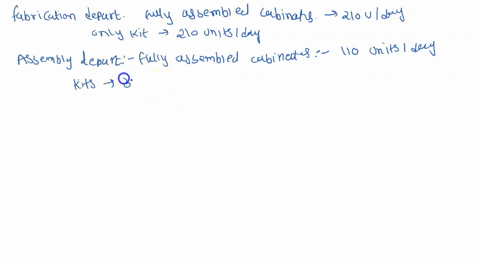 fabrication depart. fully assembled cabinates. → 210 U/day
only kit → 210 units/day
Assembly depart:- fully assembled cabinates:- 110 units/day
Kits →